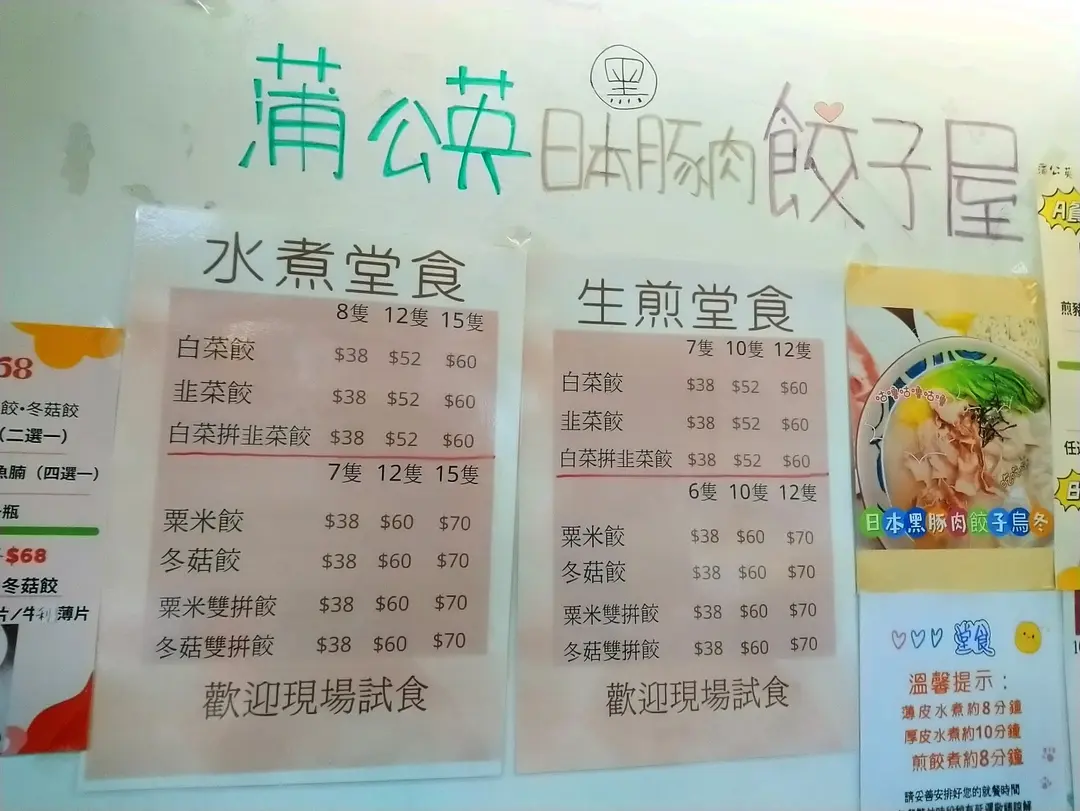 蒲公英日本黑豚肉餃子屋
水煮堂食
8隻 12隻 15隻
白菜餃 $38 $52 $60
韭菜餃 $38 $52 $60
白菜拼韭菜餃 $38 $52 $60
7隻 12隻 15隻
粟米餃 $38 $60 $70
冬菇餃 $38 $60 $70
粟米雙拼餃 $38 $60 $70
冬菇雙拼餃 $38 $60 $70
歡迎現場試食
生煎堂食
7隻 10隻 12隻
白菜餃 $38 $52 $60
韭菜餃 $38 $52 $60
白菜拼韭菜餃 $38 $52 $60
6隻 10隻 12隻
粟米餃 $38 $60 $70
冬菇餃 $38 $60 $70
粟米雙拼餃 $38 $60 $70
冬菇雙拼餃 $38 $60 $70
歡迎現場試食
68
餃·冬菇餃
(二選一)
魚腩 (四選一)
瓶
$68
冬菇餃
片/牛脷薄片
咕嚕咕嚕咕嚕
日本黑豚肉餃子烏冬
堂食
溫馨提示：
薄皮水煮約8分鐘
厚皮水煮約10分鐘
煎餃煮約8分鐘
請妥善安排好您的就餐時間
蒲公英
A
煎豬
任